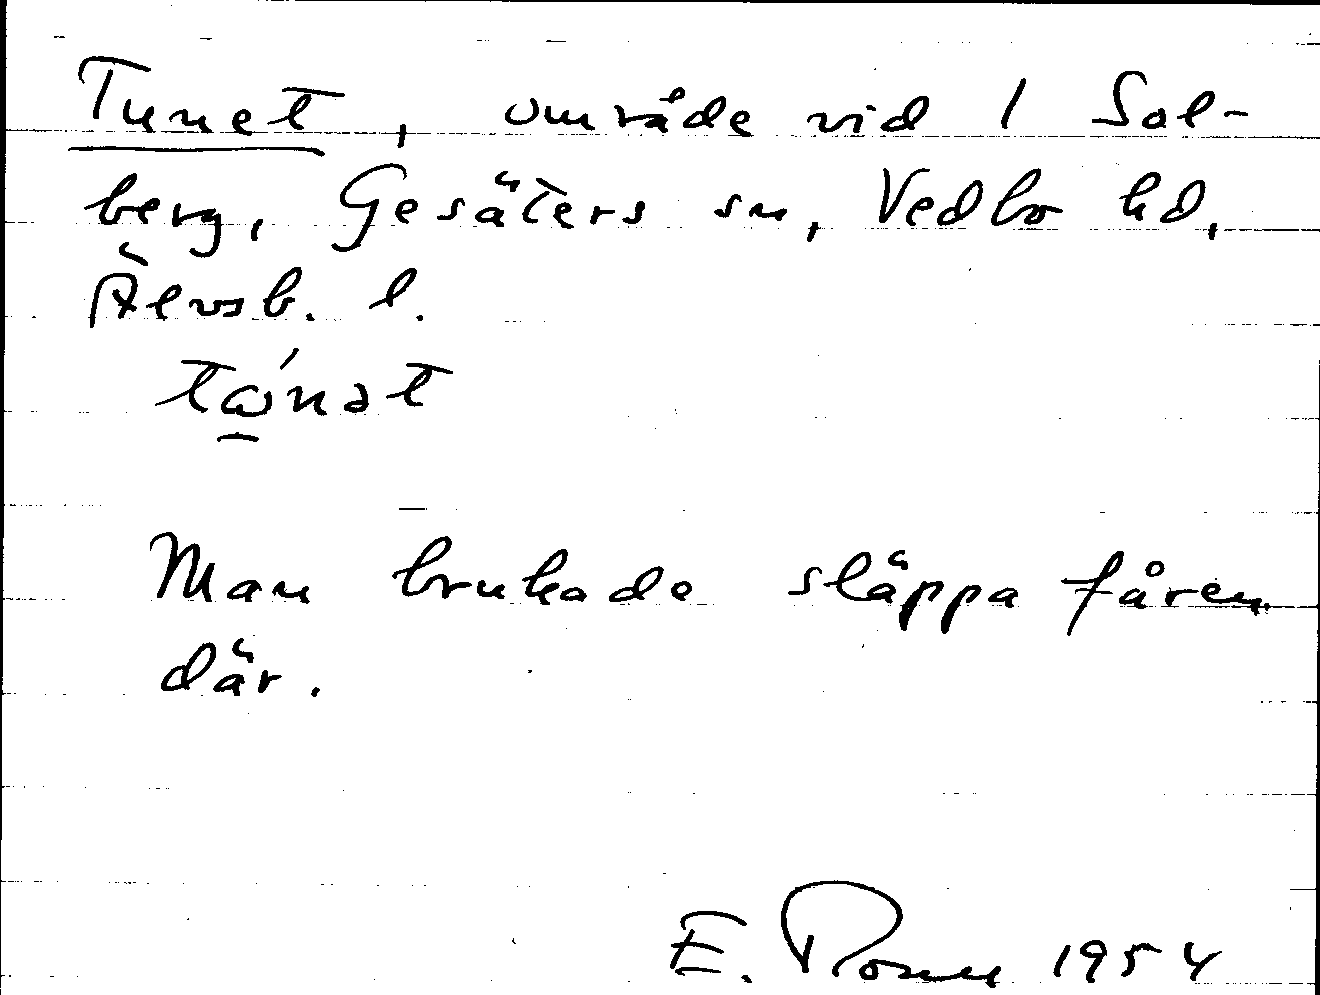 Tunet, område vid 1 Sol-
berg, Gesäters sn, Vedbo hd,
Älvsb. l.
tώ̱nət
Man brukade släppa fåren
där.
E. 1954